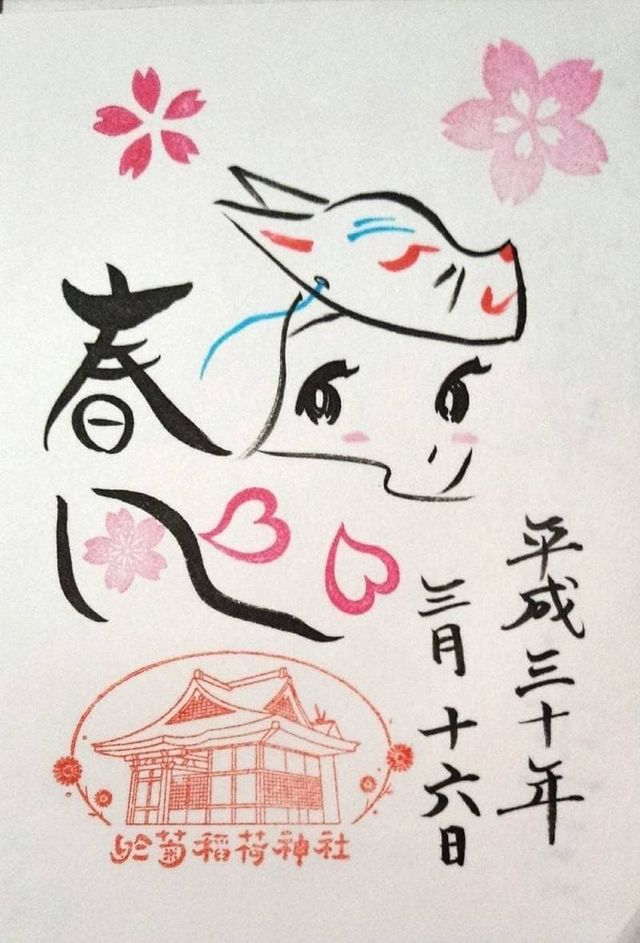 平成三十年
三月十六日
春風
於菊稲荷神社